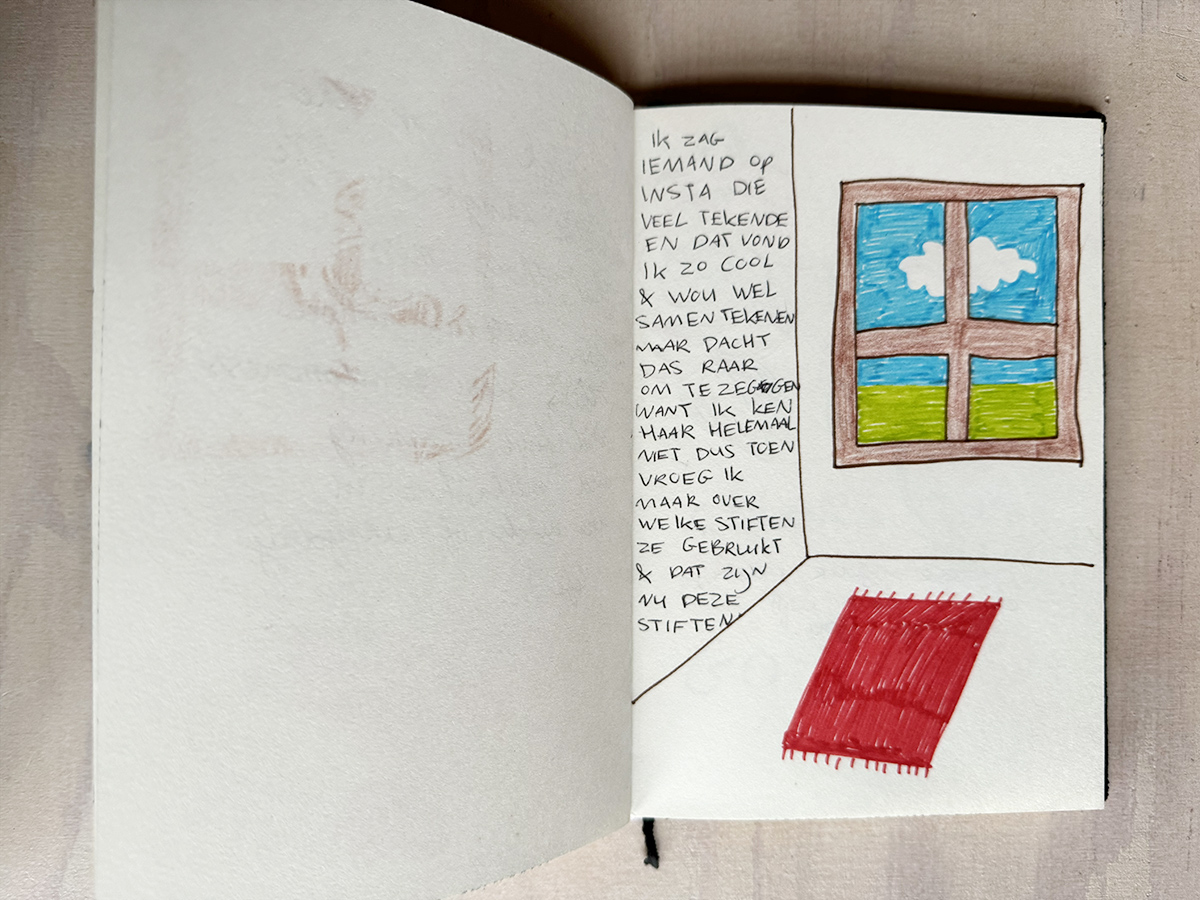 IK ZAG
IEMAND OP
INSTA DIE
VEEL TEKENDE
EN DAT VOND
IK ZO COOL
& WOU WEL
SAMEN TEKENEN
MAAR DACHT
DAS RAAR
OM TE ZEGGEN
WANT IK KEN
HAAR HELEMAAL
NIET DUS TOEN
VROEG IK
MAAR OVER
WELKE STIFTEN
ZE GEBRUIKT
& DAT ZIJN
NU DEZE
STIFTEN